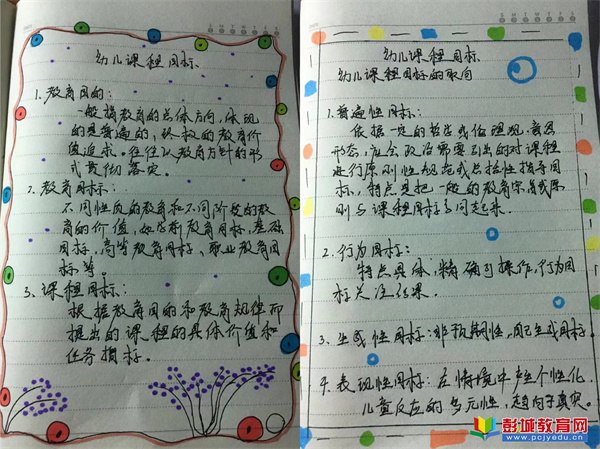 幼儿课程目标
1. 教育目的：
一般指教育的总体方向，体现
的是普遍的、终极的教育价
值追求。往往以教育方针的形
式贯彻落实。
2. 教育目标：
不同性质的教育和不同阶段的教
育的价值，如学前教育目标，基础
目标，高等教育目标，职业教育目
标等。
3. 课程目标：
根据教育目的和教育规律而
提出的课程的具体价值和
任务指标。
幼儿课程目标
幼儿课程目标的取向
1. 普遍性目标：
依据一定的哲学或伦理观、意识
形态、社会政治需要引出的对课程
进行原则性规范或总括性指导目
标，特点是把一般的教育宗旨或原
则与课程目标等同起来。
2. 行为目标：
特点具体，精确可操作，行为目
标关注结果。
3. 生成性目标：非预期性，自己生成目标。
4. 表现性目标：在情境中产生个性化，
儿童反应的多元性，趋向于真实。
彭城教育网
www.pcjyedu.cn